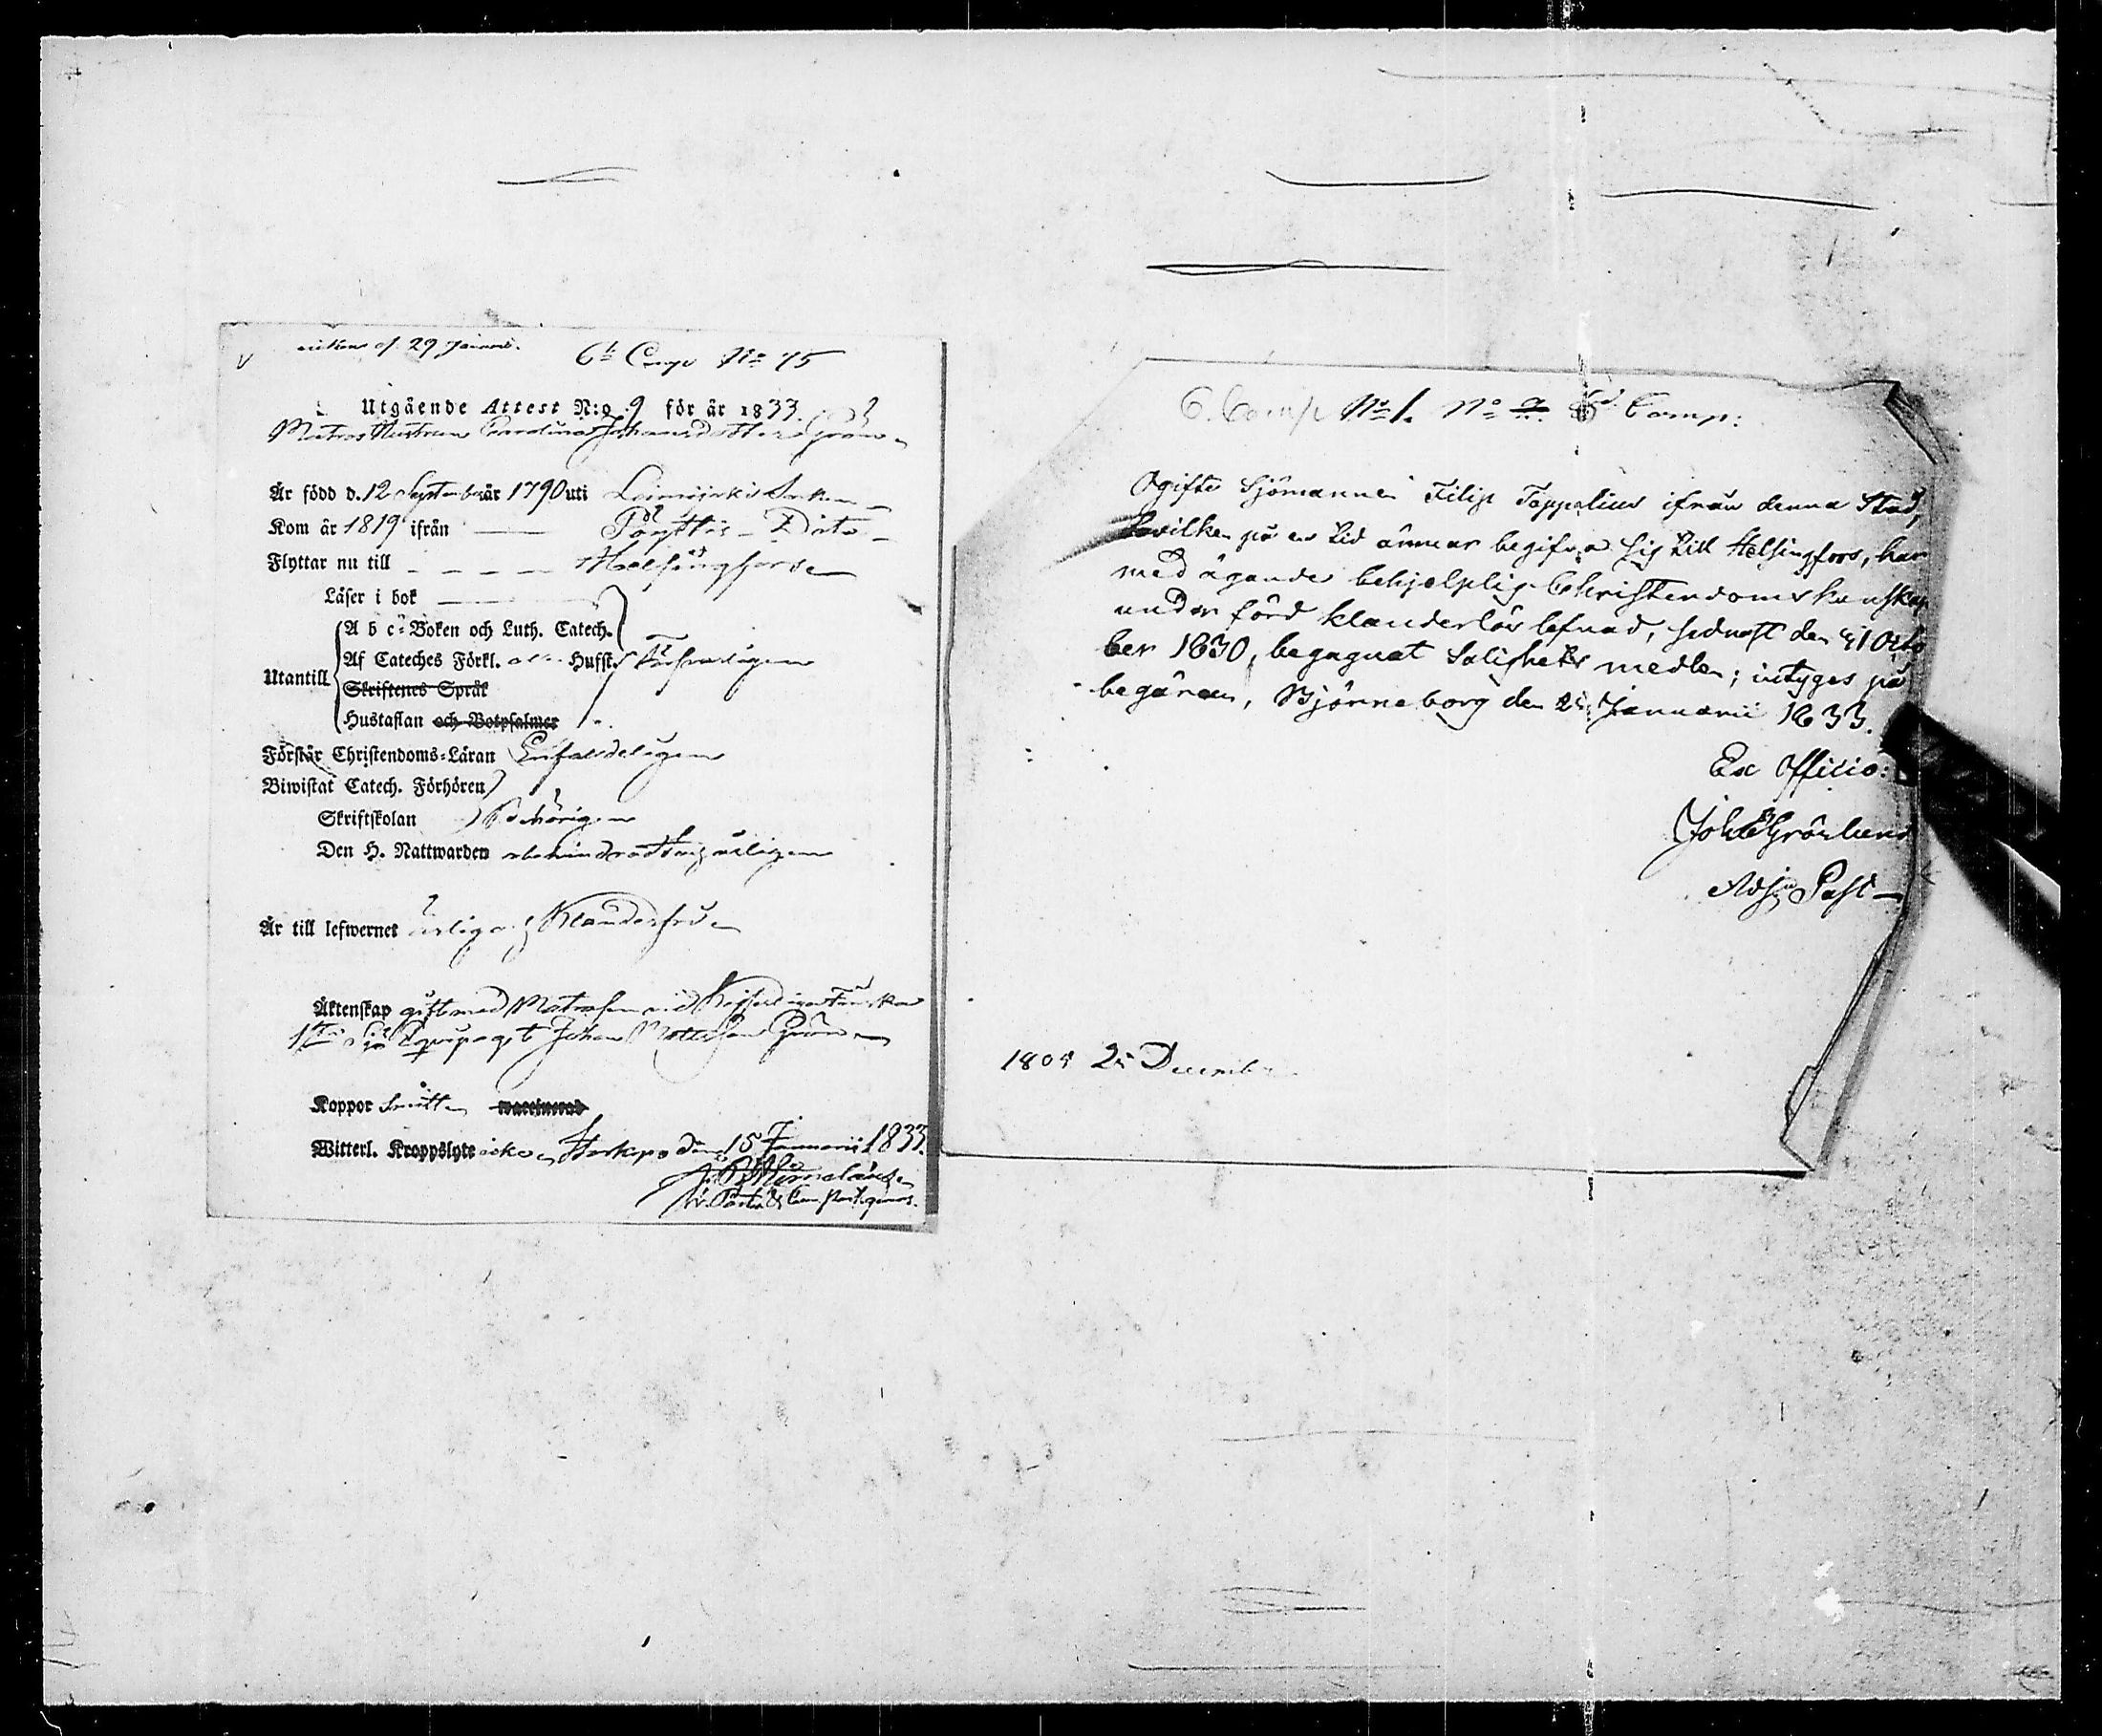 29 Januari.
6te Comp No 75
Utgående Attest N:o 9 för år 1833.
Matros Hustrun Carolina Johansdotter Grön
Är född d. 12 September år 1790 uti Leimijoki Socken
Kom år 1819 ifrån Pöyttis Dito
Flyttar nu till Helsingfors
Läser i bok
A b c-Boken och Luth. Catech.
Af Cateches Förkl. Husf. Försvarligen
Utantill
Skriftenes Språk
Hustaflan och Botpsalmer
Förstår Christendoms-Läran Enfaldeligen
Biwistat Catech. Förhören
Skriftskolan Behörigen
Den H. Nattwarden obehindradt
Är till lefwernet ärlig o. Klanderfri
Äktenskap gift med Matrosen vid Kejserliga Finska
1sta Sjö Equipaget Johan Mattsson Grön
Koppor Smitt waccinerad
Witterl. Kroppslyte icke, Storkyro den 15 Januarii 1833.
6. Comp No 1. No 2. 6 Comp:
Ogifte Sjömannen Filip Toppelius ifrån denna Stad,
hvilken på en tid ämnar begifva sig till Helsingfors, har
med ägande behjelplig Christendoms kunskap
under förd klanderlös lefnad, sednast den 31 Octo
ber 1830, begagnat Salighets medlen; intyges på
begäran, Björneborg den Januarii 1833.
Ex Officio:
Joh Grönlund
Adj Past
1805 25 December